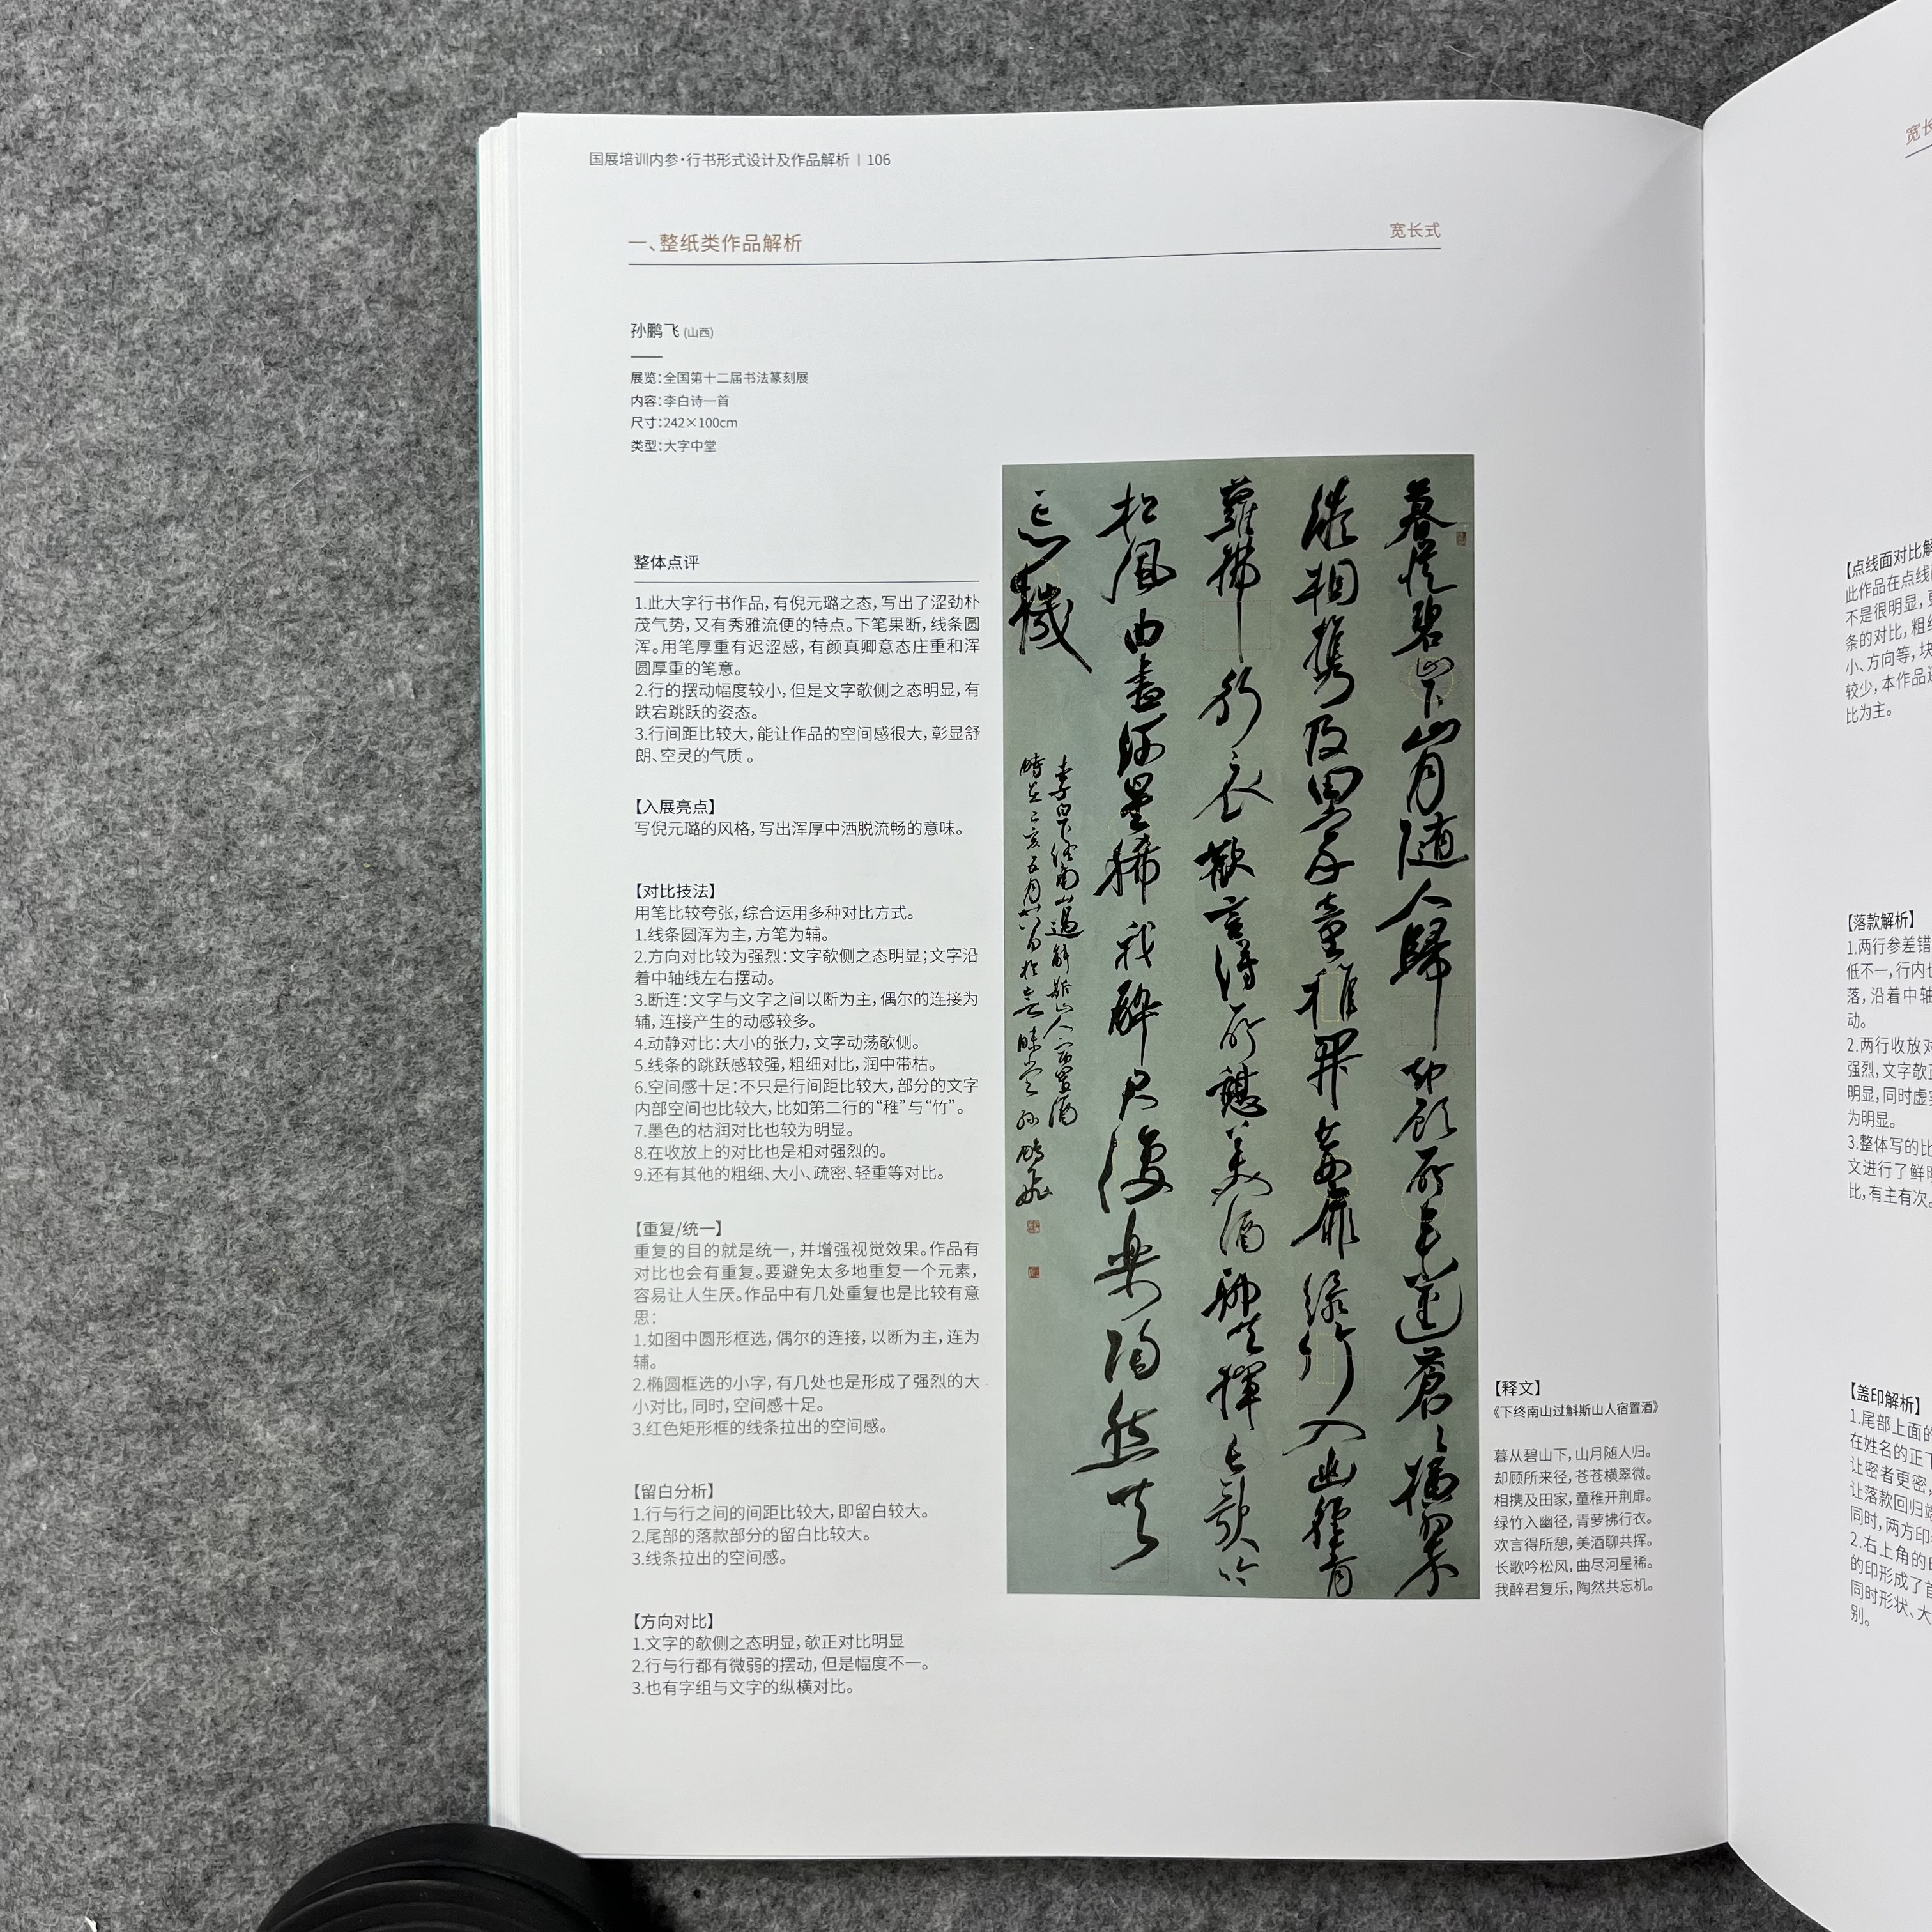 国展培训内参·行书形式设计及作品解析 | 106
一、整纸类作品解析
宽长式
孙鹏飞 (山西)
展览:全国第十二届书法篆刻展
内容:李白诗一首
尺寸:242×100cm
类型:大字中堂
整体点评
1.此大字行书作品,有倪元璐之态,写出了涩劲朴
茂气势,又有秀雅流便的特点。下笔果断,线条圆
浑。用笔厚重有迟涩感,有颜真卿意态庄重和浑
圆厚重的笔意。
2.行的摆动幅度较小,但是文字欹侧之态明显,有
跌宕跳跃的姿态。
3.行间距比较大,能让作品的空间感很大,彰显舒
朗、空灵的气质。
【入展亮点】
写倪元璐的风格,写出浑厚中洒脱流畅的意味。
【对比技法】
用笔比较夸张,综合运用多种对比方式。
1.线条圆浑为主,方笔为辅。
2.方向对比较为强烈:文字欹侧之态明显;文字沿
着中轴线左右摆动。
3.断连:文字与文字之间以断为主,偶尔的连接为
辅,连接产生的动感较多。
4.动静对比:大小的张力,文字动荡欹侧。
5.线条的跳跃感较强,粗细对比,润中带枯。
6.空间感十足:不只是行间距比较大,部分的文字
内部空间也比较大,比如第二行的“稚”与“竹”。
7.墨色的枯润对比也较为明显。
8.在收放上的对比也是相对强烈的。
9.还有其他的粗细、大小、疏密、轻重等对比。
【重复/统一】
重复的目的就是统一,并增强视觉效果。作品有
对比也会有重复。要避免太多地重复一个元素,
容易让人生厌。作品中有几处重复也是比较有意
思:
1.如图中圆形框选,偶尔的连接,以断为主,连为
辅。
2.椭圆框选的小字,有几处也是形成了强烈的大
小对比,同时,空间感十足。
3.红色矩形框的线条拉出的空间感。
【留白分析】
1.行与行之间的间距比较大,即留白较大。
2.尾部的落款部分的留白比较大。
3.线条拉出的空间感。
【方向对比】
1.文字的欹侧之态明显,欹正对比明显
2.行与行都有微弱的摆动,但是幅度不一。
3.也有字组与文字的纵横对比。
暮從碧山下山月随人歸却顧所来逕蒼々橫翠
微相携及田家童稚開荆扉绿竹入幽徑青
蘿拂行衣歡言得所憩美酒聊共揮長歌吟
松風曲盡河星稀我醉君復樂陶然共
忘機
李白下终南山過斛斯山人宿置酒
【释文】
《下终南山过斛斯山人宿置酒》
暮从碧山下,山月随人归。
却顾所来径,苍苍横翠微。
相携及田家,童稚开荆扉。
绿竹入幽径,青萝拂行衣。
欢言得所憩,美酒聊共挥。
长歌吟松风,曲尽河星稀。
我醉君复乐,陶然共忘机。
宽长
【点线面对比解
此作品在点线
不是很明显,
条的对比,粗
小、方向等,块
较少,本作品
比为主。
【落款解析】
1.两行参差错
低不一,行内
落,沿着中轴
动。
2.两行收放对
强烈,文字欹
明显,同时虚
为明显。
3.整体写的比
文进行了鲜明
比,有主有次。
【盖印解析】
1.尾部上面的
在姓名的正
让密者更密,
让落款回归
同时,两方印
2.右上角的
的印形成了首
同时形状、大
别。